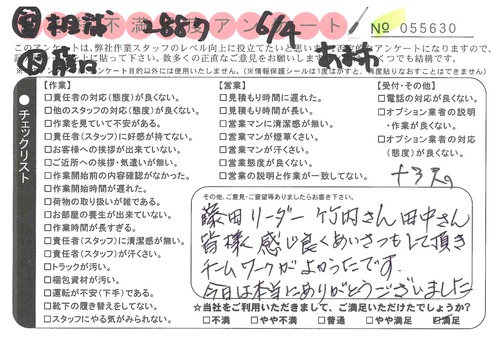 不満足度アンケート
2887
6/4
No 055630
このアンケートは、弊社作業スタッフのレベル向上に役立てたいと思い
作業目的以外には使用いたしません。(※情報保護シールは1度はがすと、再度貼りなおすことはできません)
チェックリスト
【作業】
□責任者の対応(態度)が良くない。
□他のスタッフの対応(態度)が良くない。
□作業を見ていて不安がある。
□責任者(スタッフ)に好感が持てない。
□お客様への挨拶が出来ていない。
□ご近所への挨拶・気遣いが無い。
□作業開始前の内容確認がなかった。
□作業開始時間が遅れた。
□荷物の取り扱いが雑である。
□お部屋の養生が出来ていない。
□作業時間が長すぎる。
□責任者(スタッフ)に清潔感が無い。
□責任者(スタッフ)が汗くさい。
□トラックが汚い。
□梱包資材が汚い。
□運転が不安(下手)である。
□靴下の履き替えをしてない。
□スタッフにやる気がみられない。
【営業】
□見積もり時間に遅れた。
□見積もり時間が長い。
□営業マンに清潔感が無い。
□営業マンが煙草くさい。
□営業マンが汗くさい。
□営業態度が良くない。
□営業の説明と作業が一致してない。
【受付・その他】
□電話の対応が良くない。
□オプション業者の説明
・作業が良くない。
□オプション業者の対応
(態度)が良くない。
その他、ご意見・ご要望等ありましたらお書き下さい。
藤田リーダー 竹内さん 田中さん
皆様 感じ良くあいさつもして頂き
チームワークがよかったです。
今日は本当にありがとうございました
☆当社をご利用いただきまして、ご満足いただけたでしょうか?
□不満 □やや不満 □普通 □やや満足 ☑満足